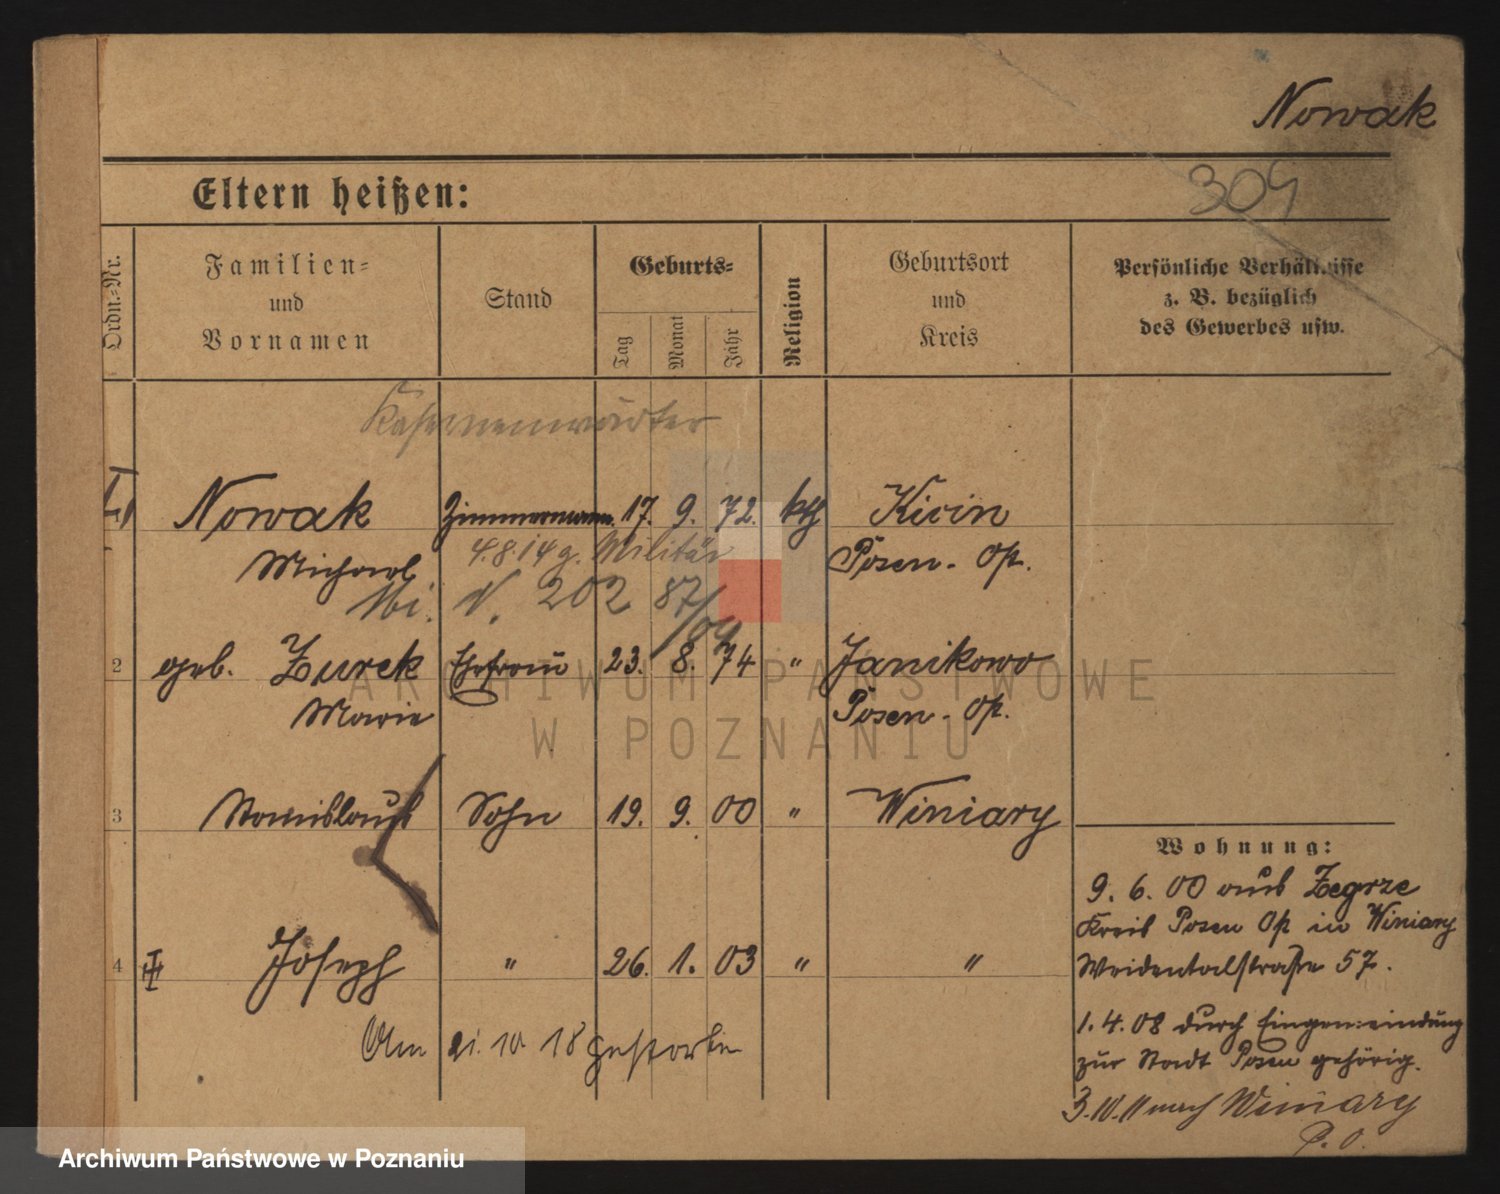 Nowak
304
Eltern heißen:
Ordn.-Nr.
Familien-
und
Vornamen
Stand
Geburts-
Tag
Monat
Jahr
Religion
Geburtsort
und
Kreis
Persönliche Verhältnisse
z. B. bezüglich
des Gewerbes usw.
Kasernenwärter
Nowak Zimmermann. 17. 9. 72. kth Kicin
Michael 4.8.14 z. Militär Posen - Op.
V. 202 87/09
2 geb. Żurek Ehefrau 23. 8. 74 " Janikowo
Marie Posen - Op.
3 Stanislaus Sohn 19. 9. 00 " Winiary
4 Joseph " 26. 1. 03 " "
Am 21. 10 18 gestorben
Wohnung:
9. 6. 00 aus Żegrze
Kreis Posen Op in Winiary
Weidentalstraße 57.
1. 4. 08 durch Eingemeindung
zur Stadt Posen gehörig.
3. 10. 11 nach Winiary
P. O.
ARCHIWUM PAŃSTWOWE
W POZNANIU
Archiwum Państwowe w Poznaniu